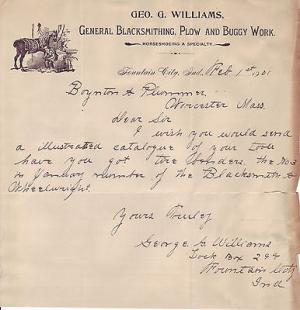 GEO. G. WILLIAMS,
GENERAL BLACKSMITHING, PLOW AND BUGGY WORK.
HORSESHOEING A SPECIALTY.
Fountain City, Ind., Feb 1st 1901
Boynton & Plummer
Worcester Mass.
Dear Sir
I wish you would send
a illustrated catalogue of your tools
have you got the benders, the No 3
in January number of the Blacksmith &
Wheelwright.
Yours Truley
George G Williams
Lock Box 244
Fountain City
Ind